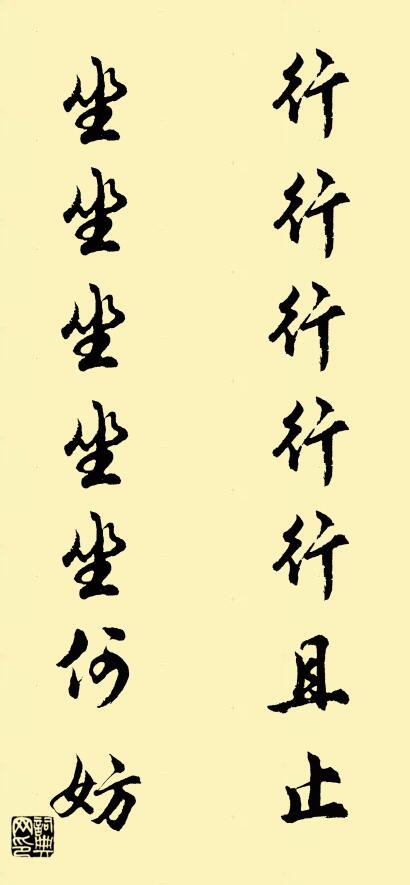 行行行行行且止
坐坐坐坐坐何妨
詞典網印